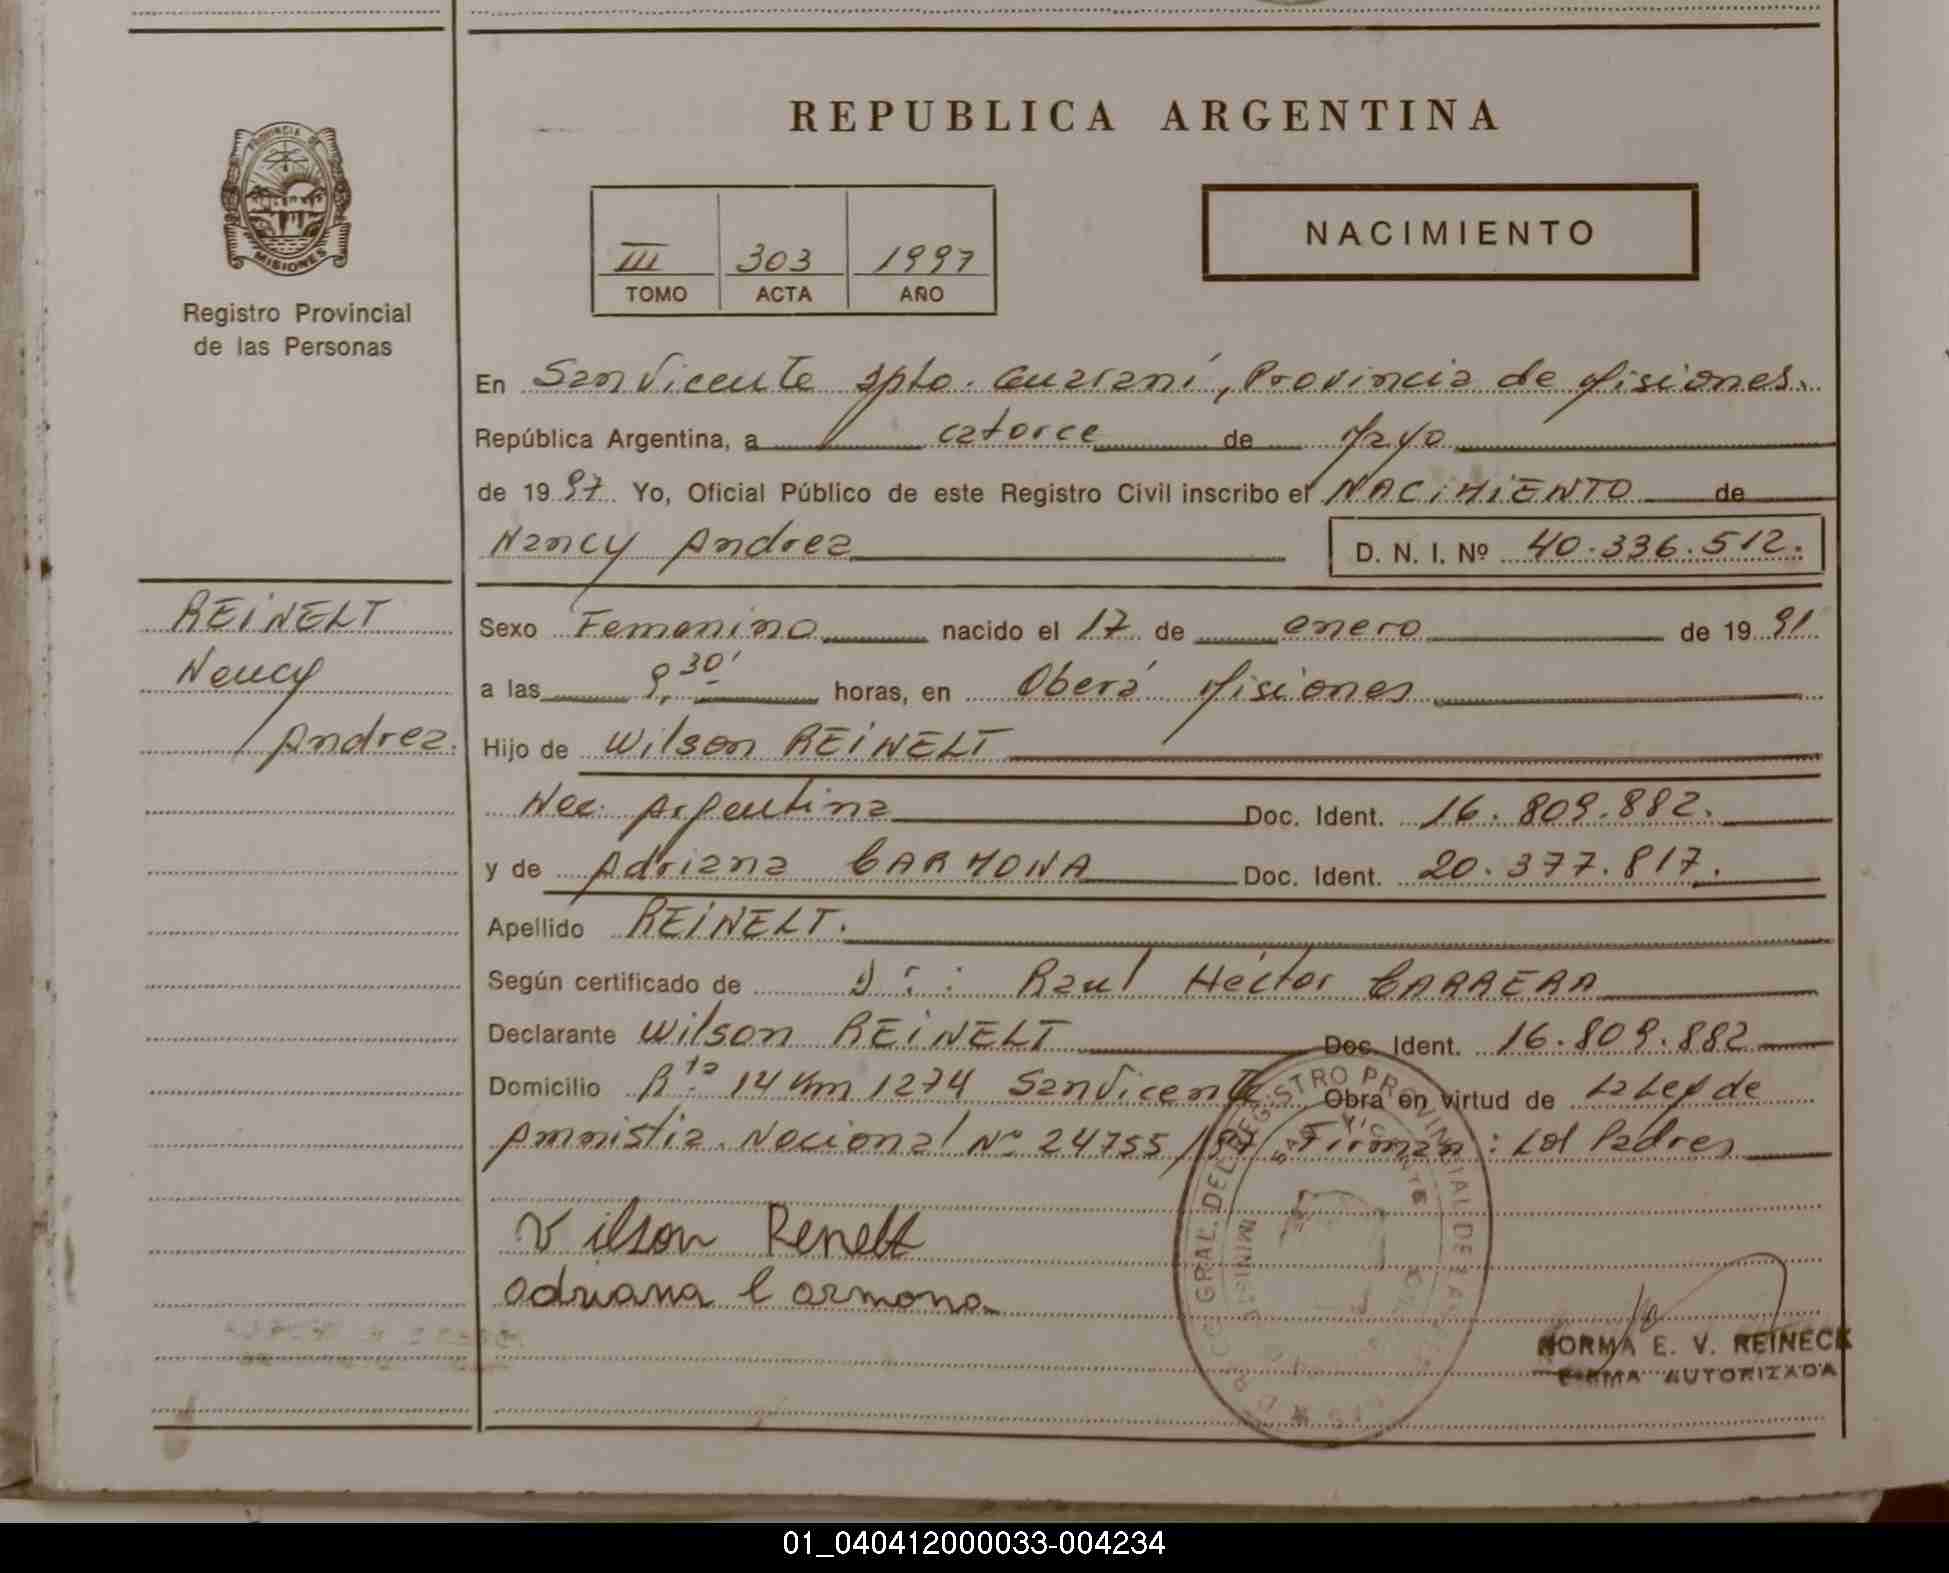 REPUBLICA ARGENTINA
PROVINCIA DE
MISIONES
Registro Provincial
de las Personas
III 303 1997
TOMO ACTA AÑO
NACIMIENTO
En San Vicente Dpto. Guaraní, Provincia de Misiones.
República Argentina, a catorce de Mayo
de 1997 Yo, Oficial Público de este Registro Civil inscribo el NACIMIENTO de
Nancy Andrea D. N. I. Nº 40.336.512.
REINELT
Nancy
Andrea.
Sexo Femenino nacido el 17 de enero de 1991
a las 9,30' horas, en Oberá Misiones
Hijo de Wilson REINELT
Nac. Argentina Doc. Ident. 16.809.882.
y de Adriana CARMONA Doc. Ident. 20.377.817.
Apellido REINELT.
Según certificado de Raul Héctor CARRERA
Declarante Wilson REINELT Doc. Ident. 16.809.882
Domicilio Rta 14 Km 1274 San Vicente Obra en virtud de La Ley de
Amnistia Nacional Nº 24755/97 Firman: Los Padres
Vilson Renelt
adriana Carmona
GRAL. DEL REGISTRO PROVINCIAL DE LAS
SAN VICENTE
NORMA E. V. REINECK
FIRMA AUTORIZADA
01_040412000033-004234